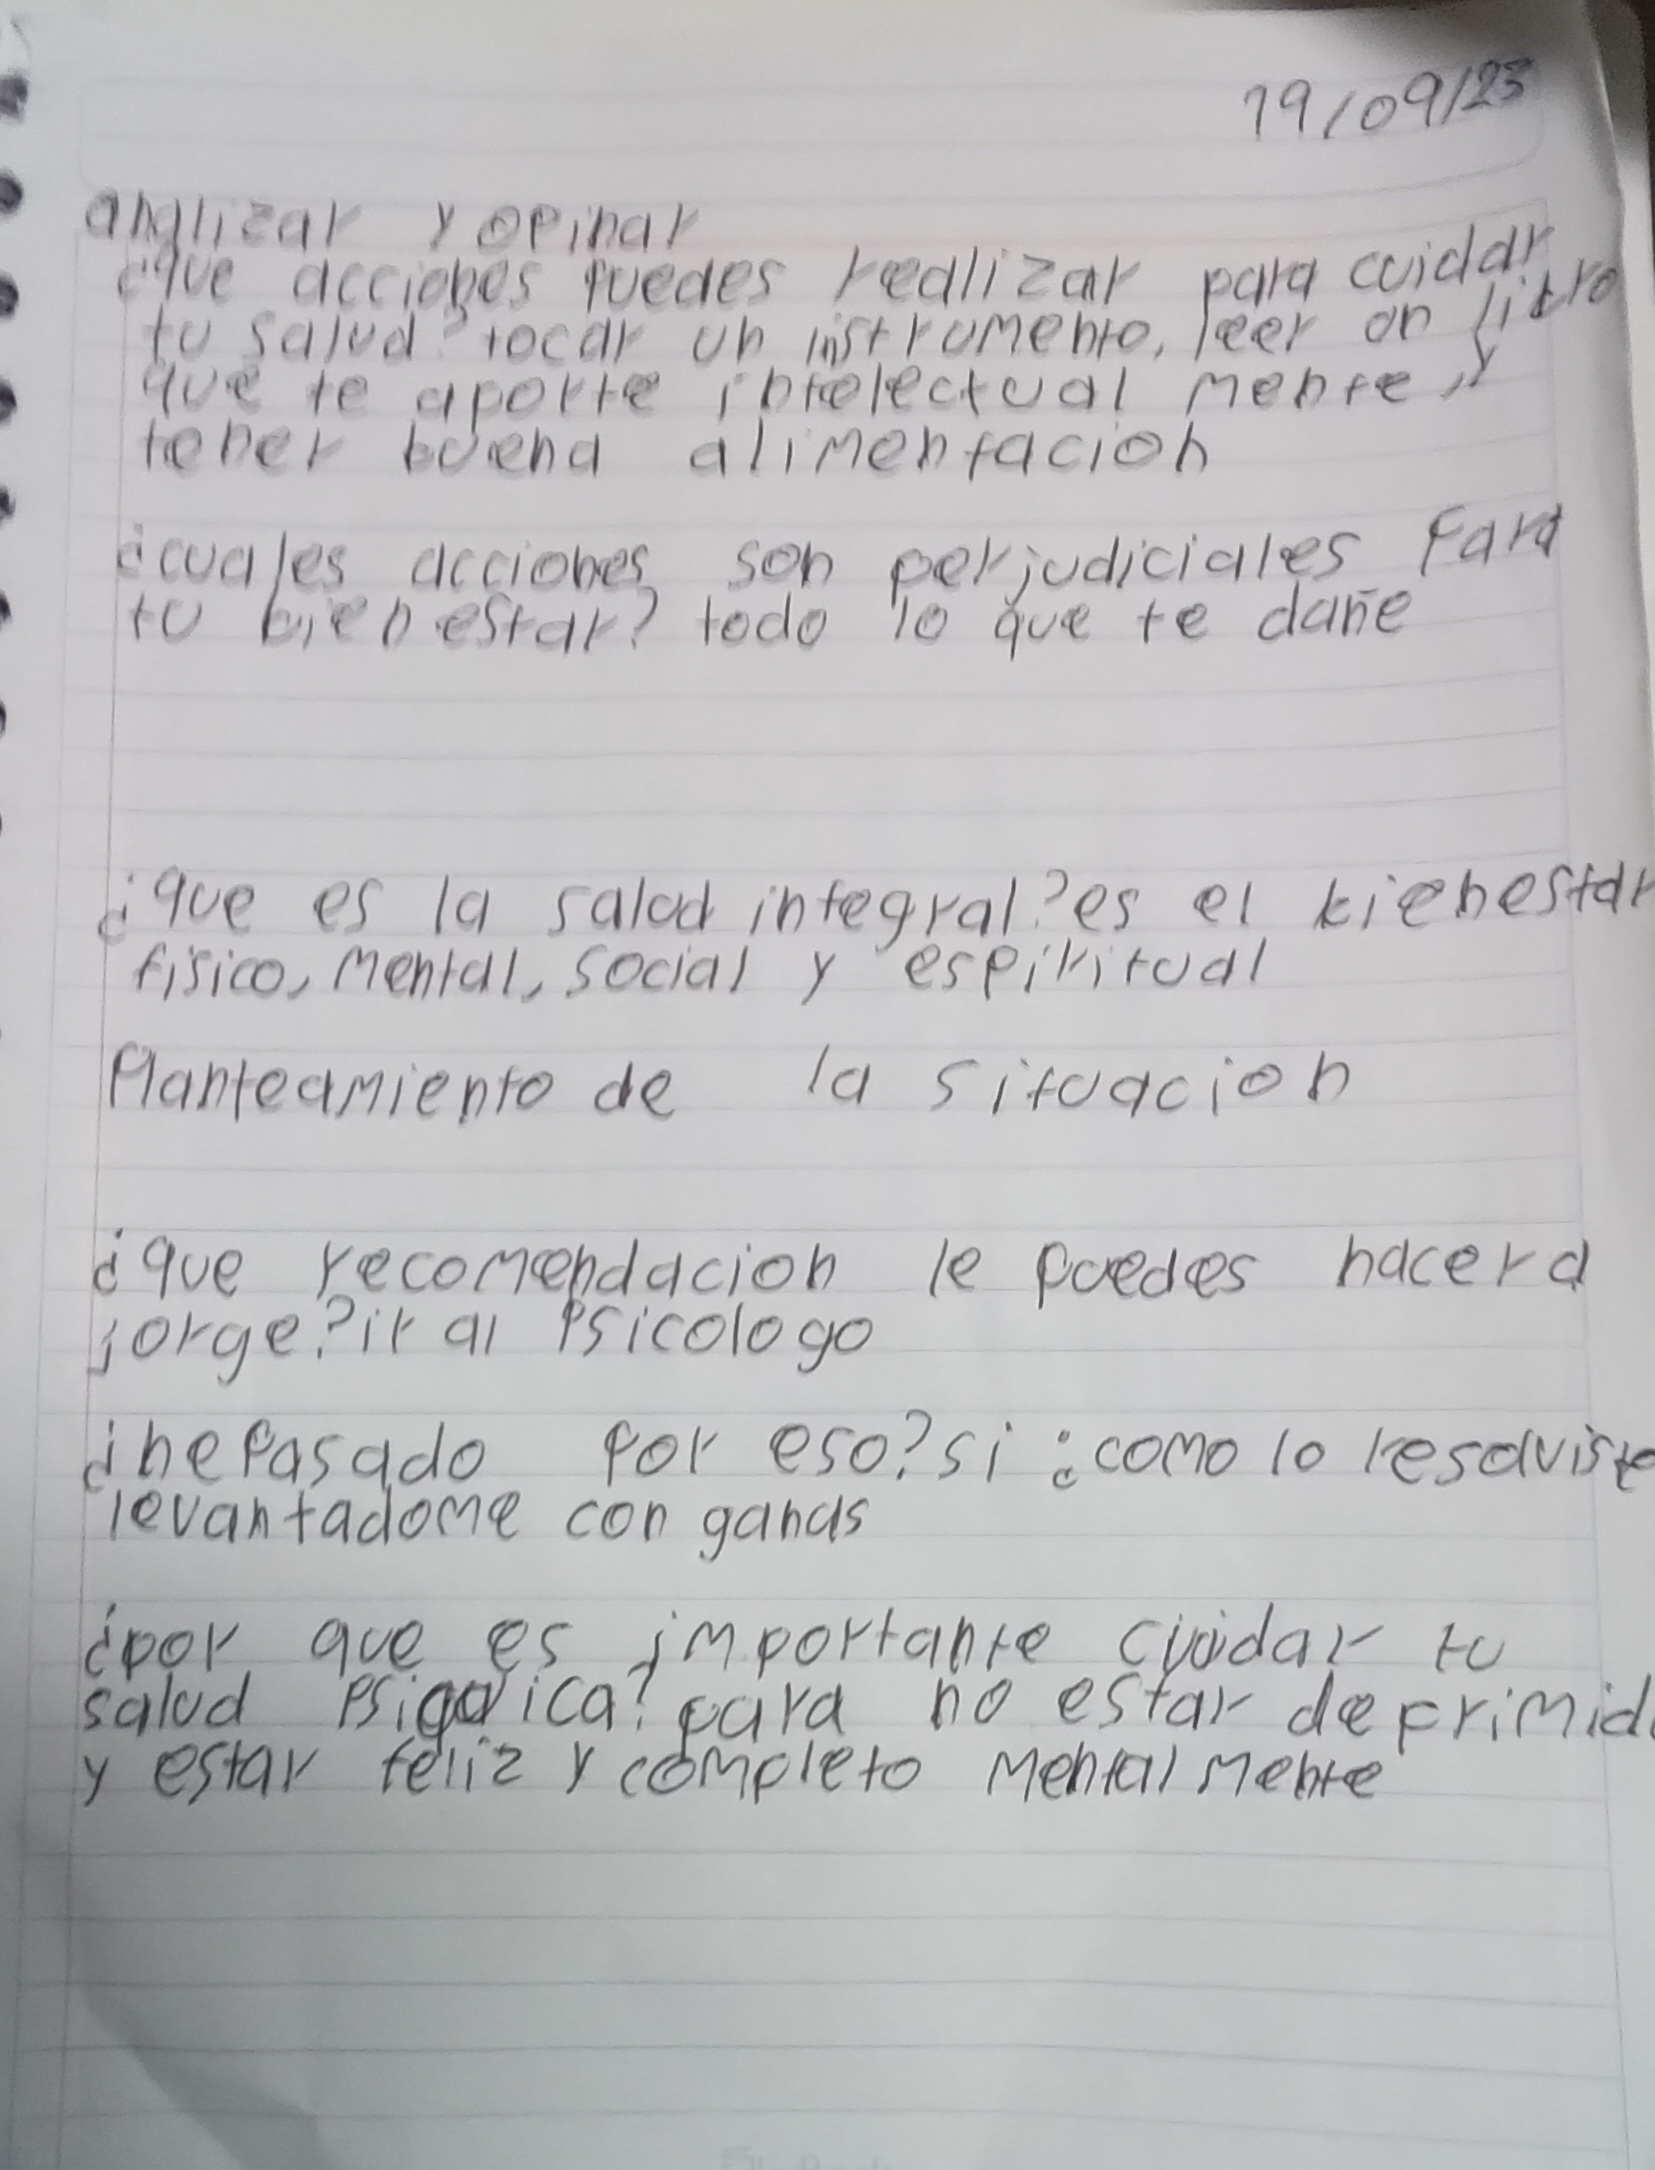 19/09/23
analizar y opinar
¿que acciones puedes realizar para cuidar
tu salud? tocar un instrumento, leer un libro
que te aporte intelectual mente, y
tener buena alimentacion
¿cuales acciones son perjudiciales para
tu bienestar? todo lo que te dañe
¿que es la salud integral? es el bienestar
fisico, mental, social y espiritual
Planteamiento de la situacion
¿que recomendacion le puedes hacer a
jorge? ir al psicologo
¿he pasado por eso? si ¿como lo resolviste
levantadome con ganas
¿por que es importante cuidar tu
salud para no estar deprimid
y estar feliz y completo mental mente